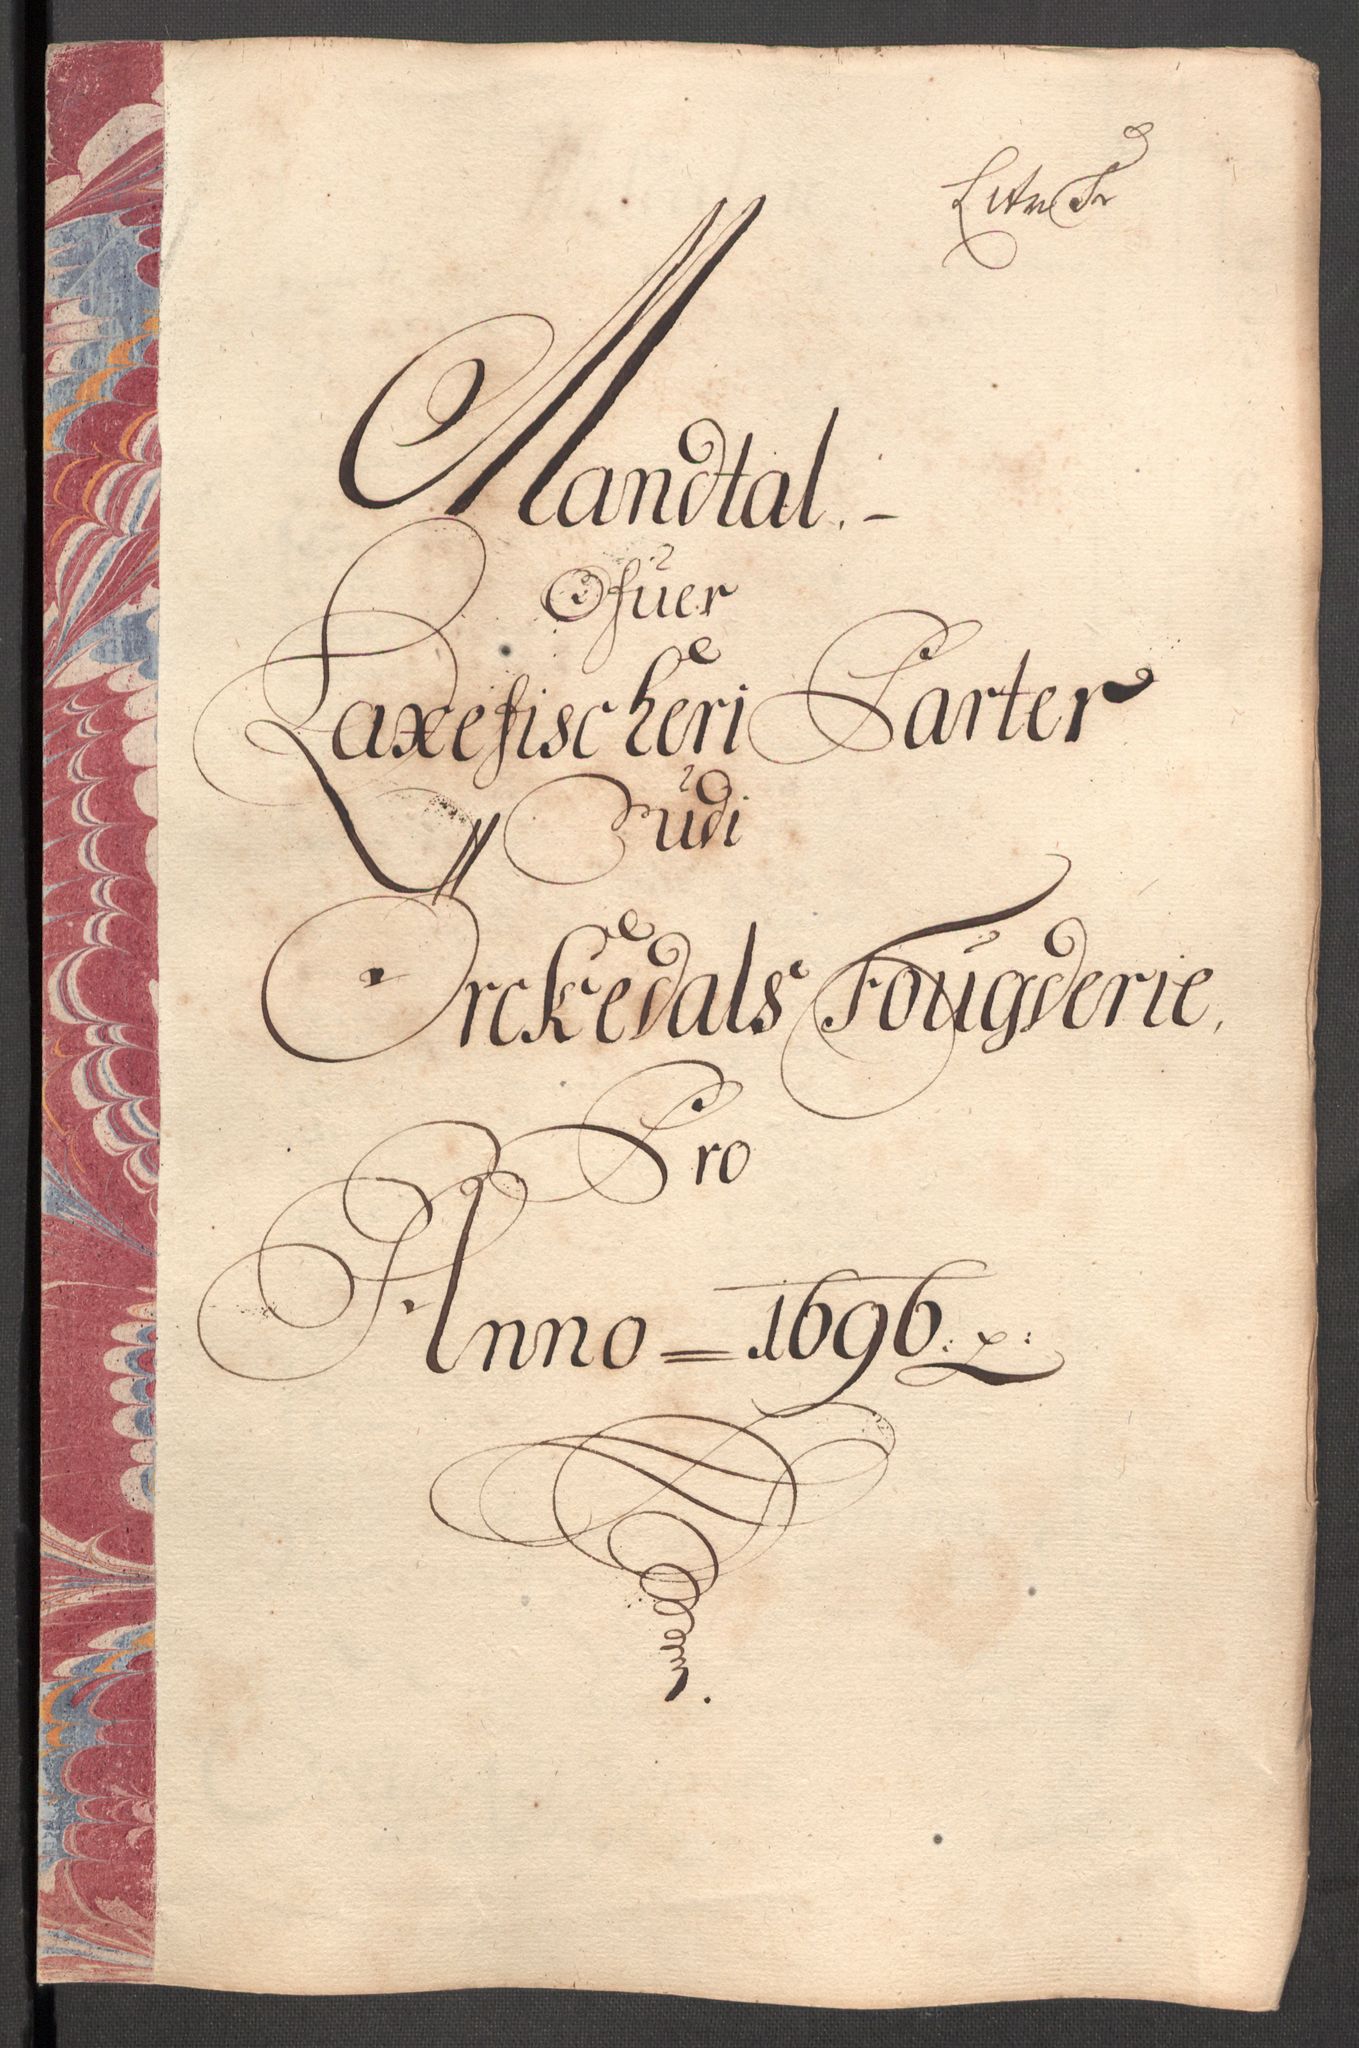 Mandtal. –
Ofuer
Laxefischeri Parter
udi
Orckedals Fougderie,
Pro
Anno = 1696